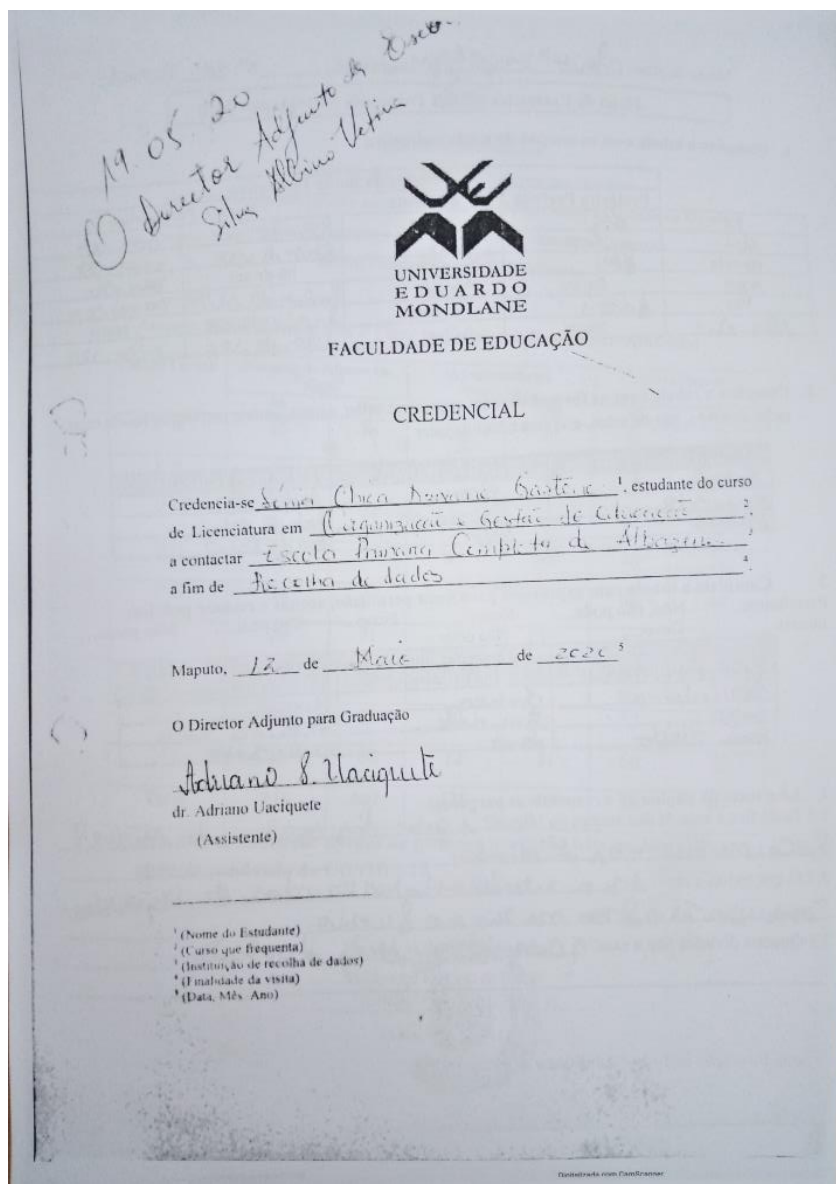 19.05.20
O Director Adjunto da
Silva Albino
UNIVERSIDADE
EDUARDO
MONDLANE
FACULDADE DE EDUCAÇÃO
CREDENCIAL
Credencia-se ¹, estudante do curso
de Licenciatura em Organização e Gestão de Educação ²,
a contactar Escola Primaria Completa de ³
a fim de Recolha de dados ⁴.
Maputo, 12 de Maio de 2020 ⁵
O Director Adjunto para Graduação
Adriano S. Uaciquete
dr. Adriano Uaciquete
(Assistente)
¹ (Nome do Estudante)
² (Curso que frequenta)
³ (Instituição de recolha de dados)
⁴ (Finalidade da visita)
⁵ (Data, Mês, Ano)
Digitalizada com CamScanner